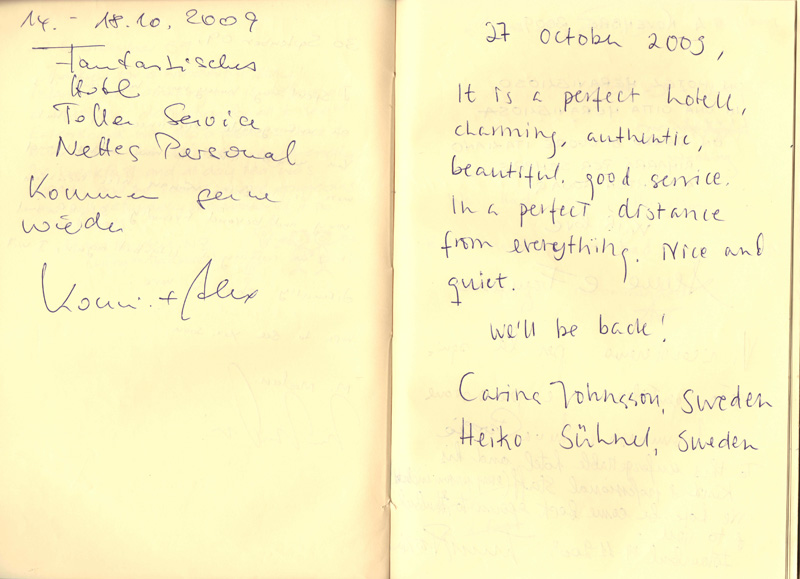 14. - 18.10. 2009
Fantastisches
Hotel
Toller Service
Nettes Personal
Kommen gerne
wieder
Konni + Alex
27 October 2009,
It is a perfect hotell,
charming, authentic,
beautiful. good service.
In a perfect distance
from everything. Nice and
quiet.
We'll be back!
Carina Johnsson, Sweden
Heiko Sühnel, Sweden